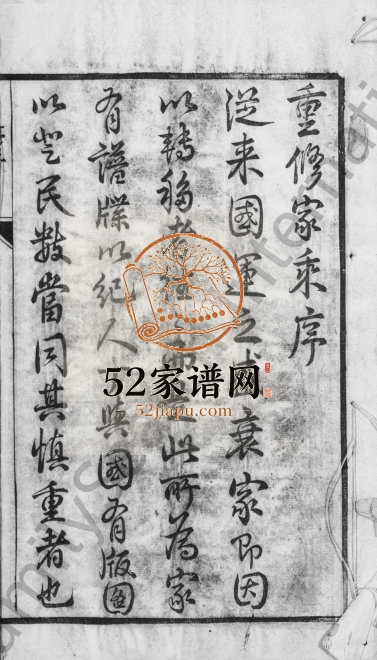 重修家乘序
從来國運之盛衰家即因
以轉移者 此所為家
有譜牒以紀人 與國有版圖
以登民数當同其慎重者也
52家谱网
52jiapu.com